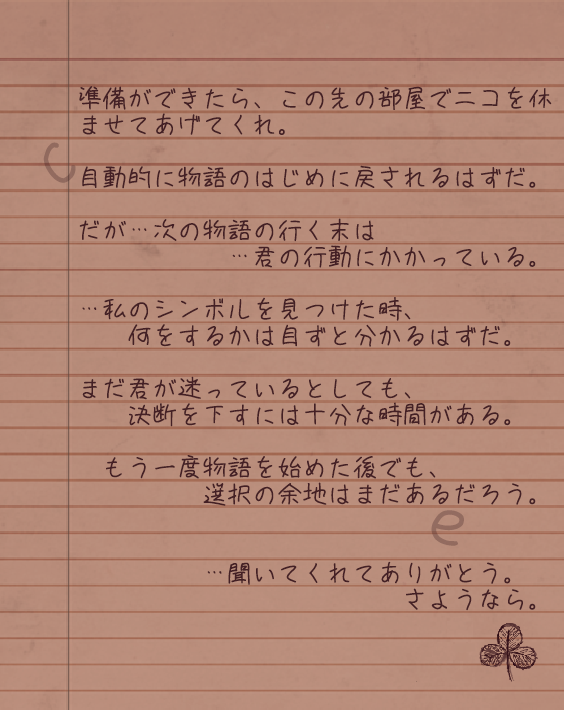 準備ができたら、この先の部屋でニコを休
ませてあげてくれ。
自動的に物語のはじめに戻されるはずだ。
だが…次の物語の行く末は
…君の行動にかかっている。
…私のシンボルを見つけた時、
何をするかは自ずと分かるはずだ。
まだ君が迷っているとしても、
決断を下すには十分な時間がある。
もう一度物語を始めた後でも、
選択の余地はまだあるだろう。
e
…聞いてくれてありがとう。
さようなら。